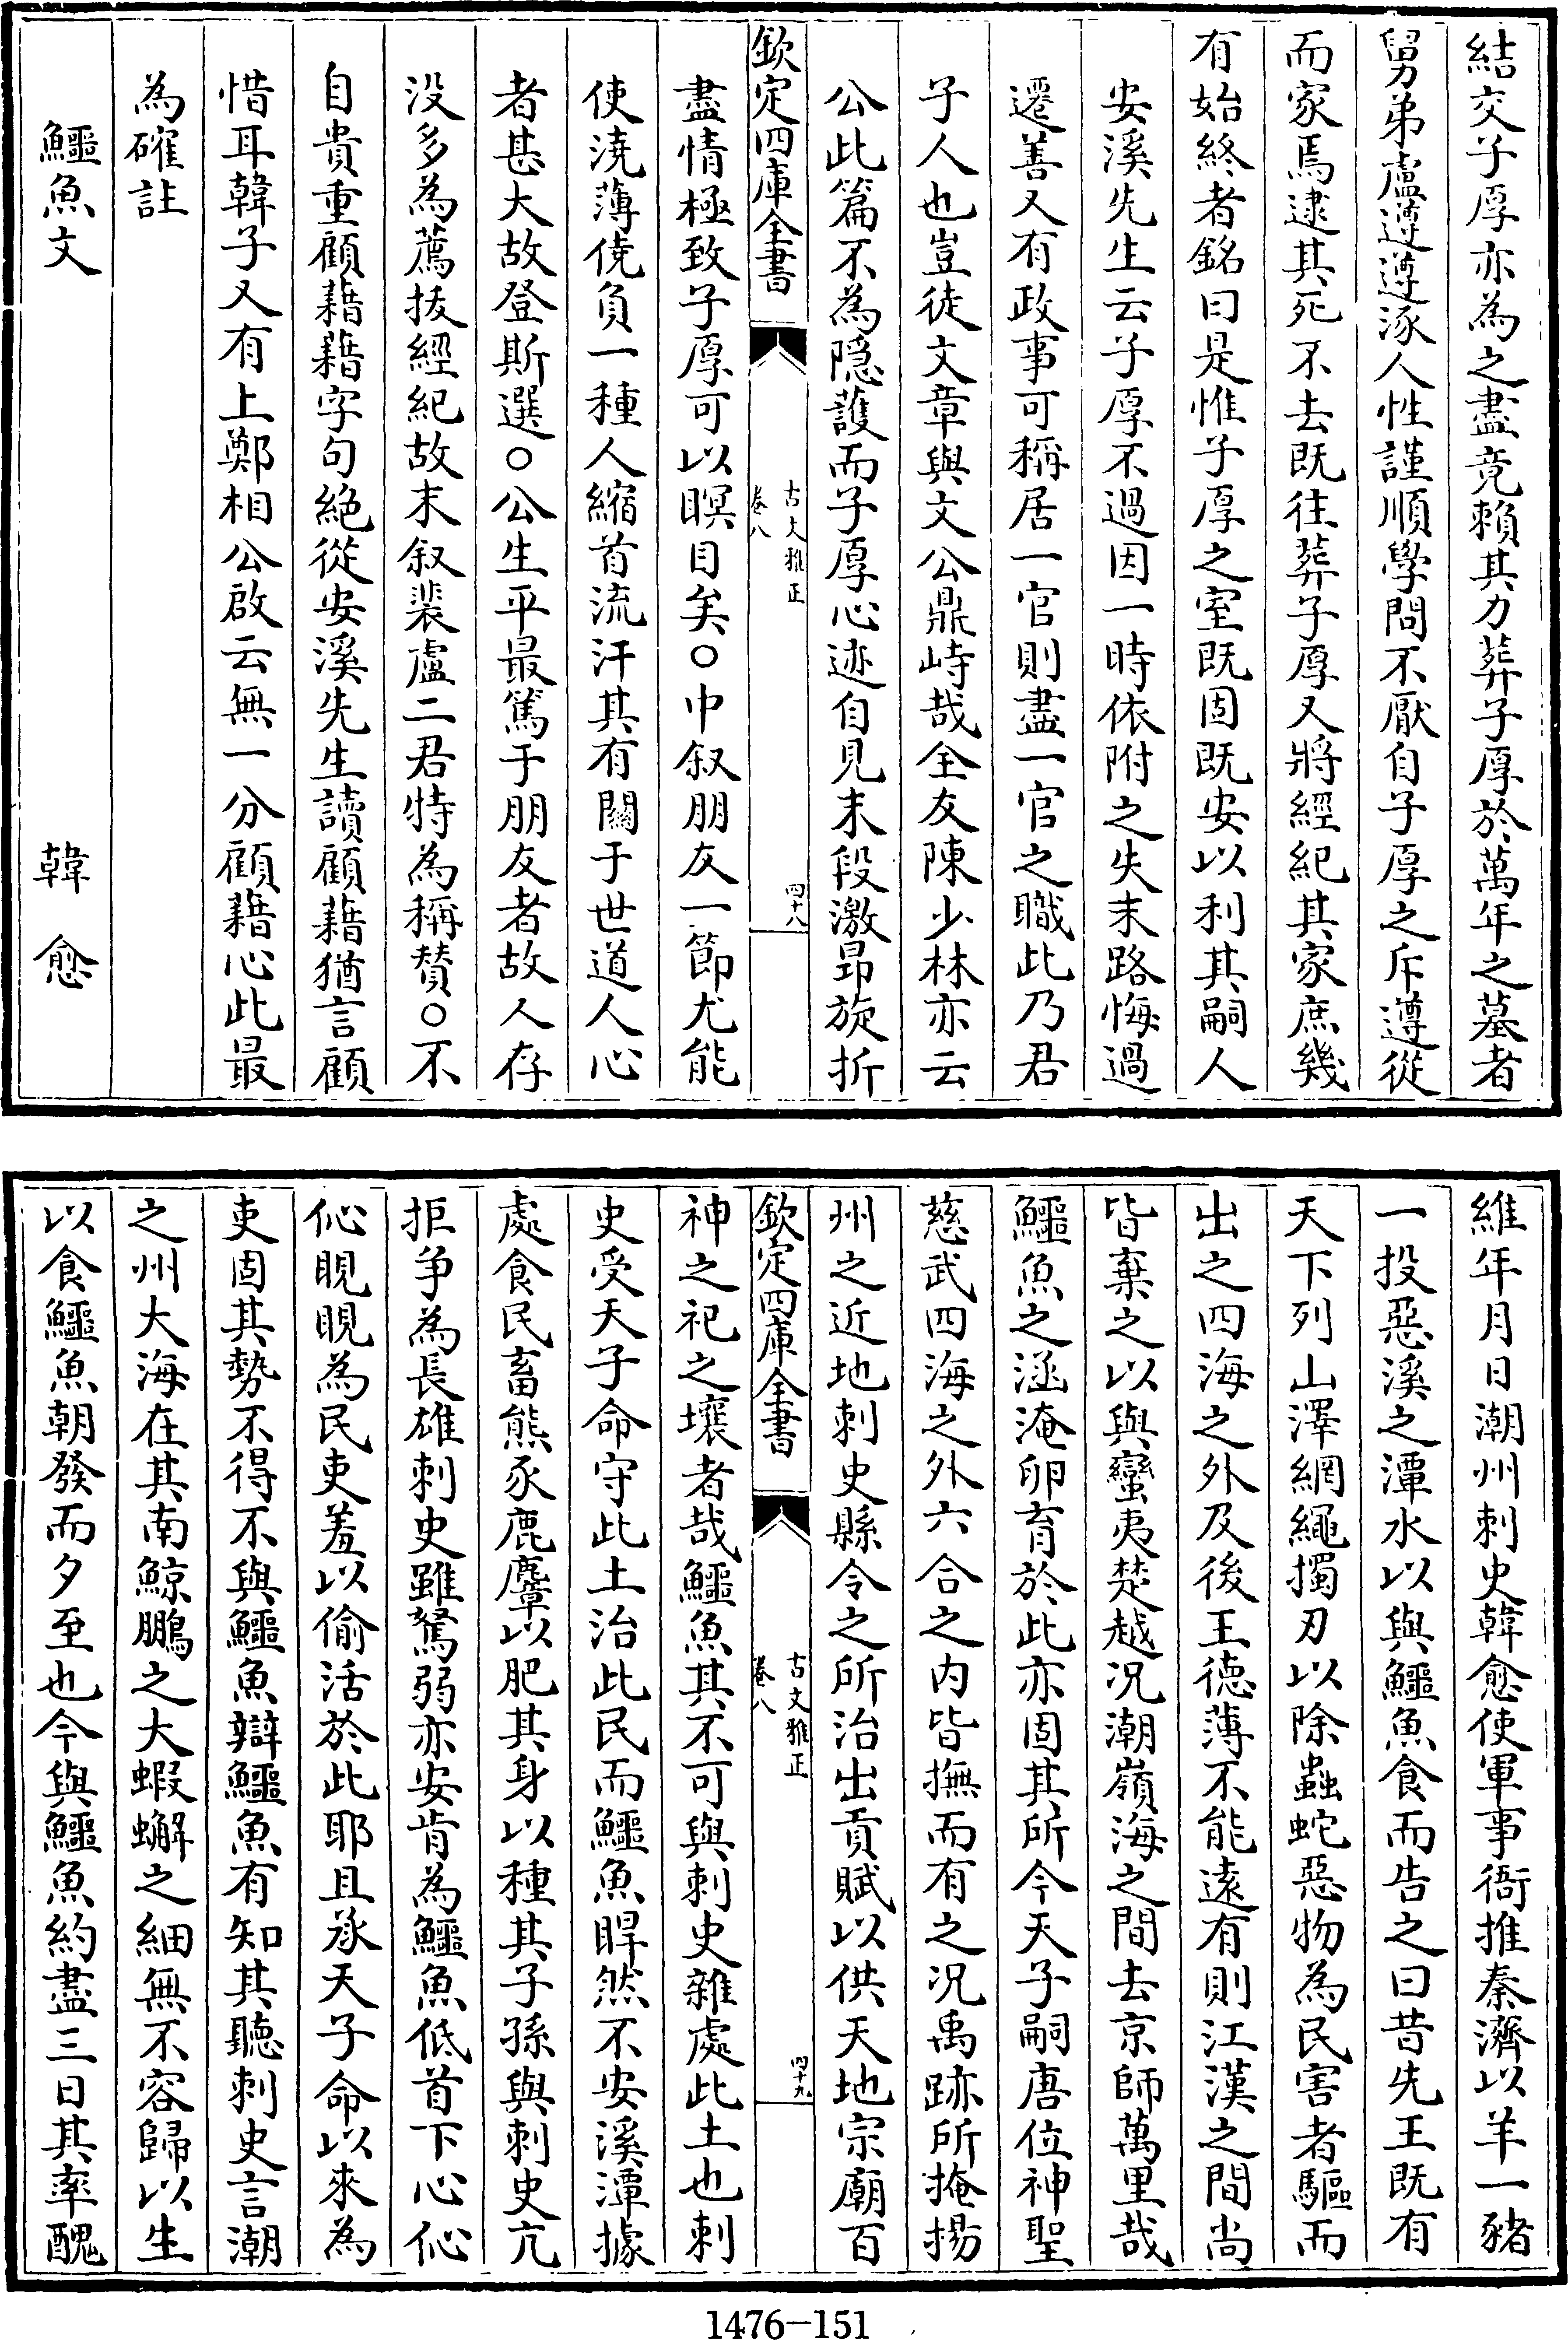 結交子厚亦為之盡竟賴其力葬子厚於萬年之墓者
舅弟盧遵遵涿人性謹順學問不厭自子厚之斥遵從
而家焉逮其死不去既往葬子厚又將經紀其家庶幾
有始終者銘曰是惟子厚之室既固既安以利其嗣人
安溪先生云子厚不過因一時依附之失末路悔過
遷善又有政事可稱居一官則盡一官之職此乃君
子人也豈徒文章與文公鼎峙哉全友陳少林亦云
公此篇不為隱護而子厚心迹自見末段激昂旋折
欽定四庫全書
古文雅正
卷八
四十八
盡情極致子厚可以瞑目矣○中叙朋友一節尤能
使澆薄僥負一種人縮首流汗其有關于世道人心
者甚大故登斯選○公生平最篤于朋友者故人存
没多為薦拔經紀故末叙裴盧二君特為稱賛○不
自貴重顧藉藉字句絶從安溪先生讀顧藉猶言顧
惜耳韓子又有上鄭相公啟云無一分顧藉心此最
為確註
鱷魚文
韓愈
維年月日潮州刺史韓愈使軍事衙推秦濟以羊一豬
一投惡溪之潭水以與鱷魚食而告之曰昔先王既有
天下列山澤網繩擉刃以除蟲蛇惡物為民害者驅而
出之四海之外及後王德薄不能遠有則江漢之間尚
皆棄之以與蠻夷楚越况潮嶺海之間去京師萬里哉
鱷魚之涵淹卵育於此亦固其所今天子嗣唐位神聖
慈武四海之外六合之内皆撫而有之况禹跡所掩揚
州之近地刺史縣令之所治出貢賦以供天地宗廟百
欽定四庫全書
古文雅正
卷八
四十九
神之祀之壤者哉鱷魚其不可與刺史雜處此土也刺
史受天子命守此土治此民而鱷魚睅然不安溪潭據
處食民畜熊豕鹿麞以肥其身以種其子孫與刺史亢
拒争為長雄刺史雖駑弱亦安肯為鱷魚低首下心伈
伈睍睍為民吏羞以偷活於此耶且承天子命以來為
吏固其勢不得不與鱷魚辯鱷魚有知其聽刺史言潮
之州大海在其南鯨鵬之大蝦蠏之細無不容歸以生
以食鱷魚朝發而夕至也今與鱷魚約盡三日其率醜
1476-151